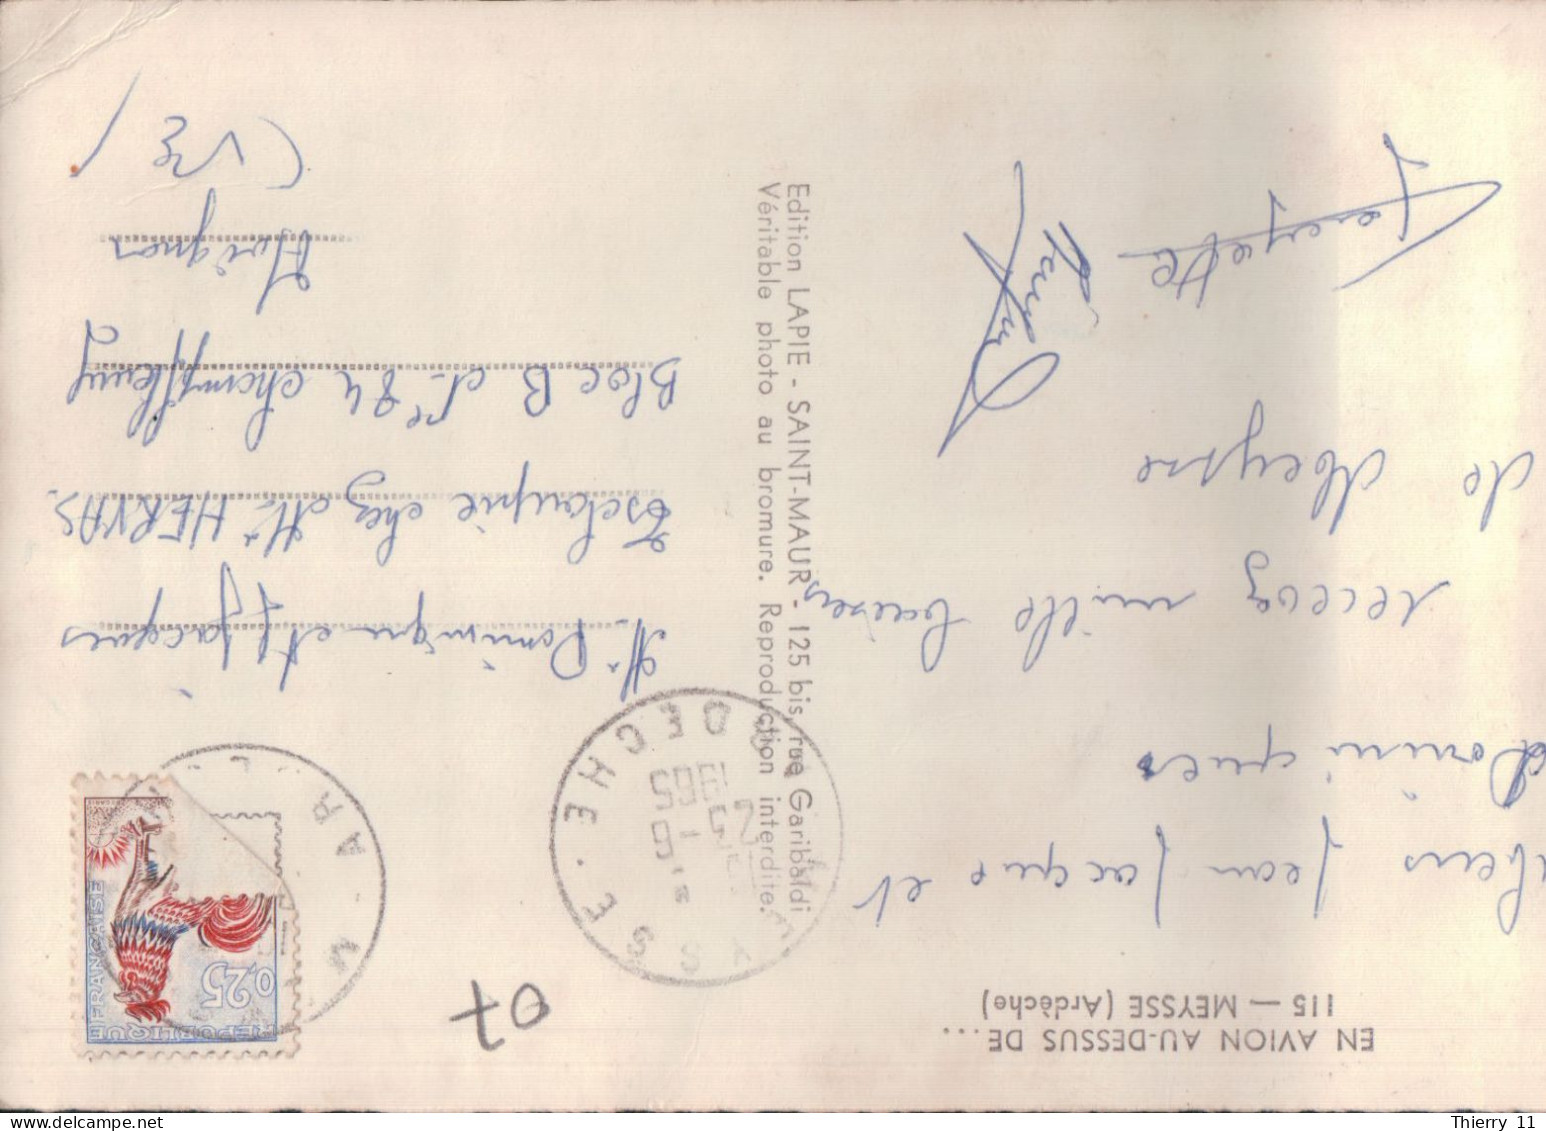 EN AVION AU-DESSUS DE...
115 — MEYSSE (Ardèche)
Jean Jacque et
Dominiques
recevez mille baisers
de Meysse
Edition LAPIE - SAINT-MAUR - 125 bis, rue Garibaldi
Véritable photo au bromure. Reproduction interdite.
07
REPUBLIQUE FRANÇAISE
0,25
MEYSSE. ARDECHE
1965
Mr Dominique et J. Jacques
chez Mr HERVAS.
Bloc B No 84 Champfleury
Avignon
(VSE)
Thierry 11